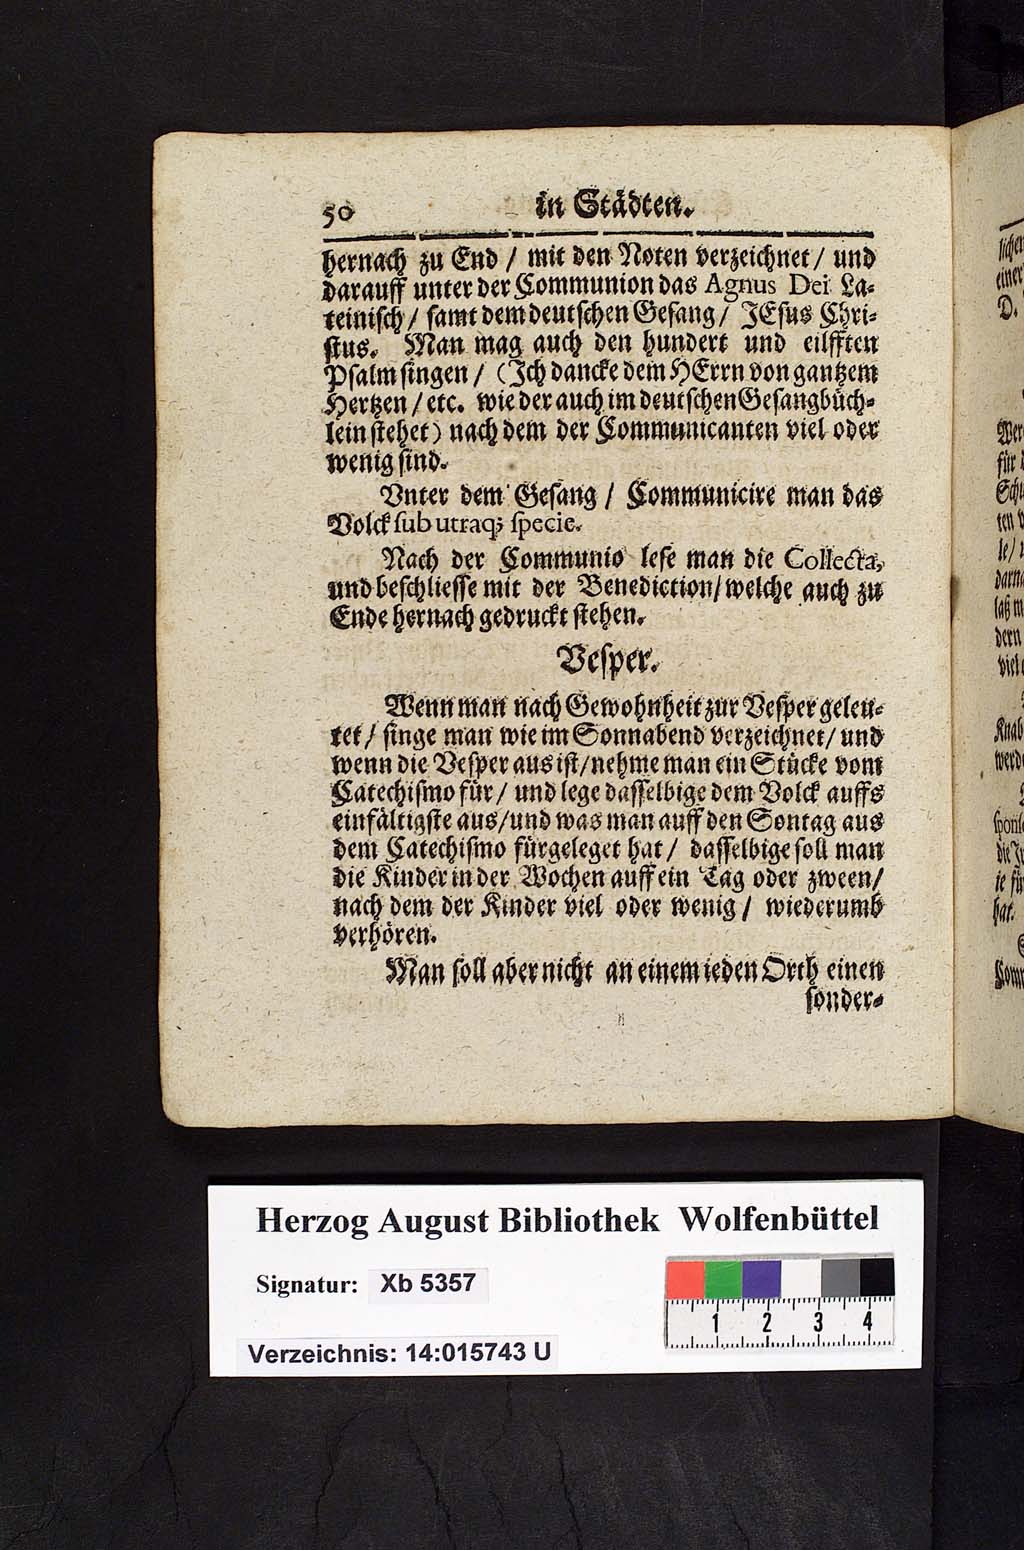 50 in Städten.
hernach zu End / mit den Noten verzeichnet / und
darauff unter der Communion das Agnus Dei La-
teinisch / samt dem deutschen Gesang / JEsus Chri-
stus. Man mag auch den hundert und eilfften
Psalm singen / (Ich dancke dem HErrn von gantzem
Hertzen / etc. wie der auch im deutschen Gesangbüch-
lein stehet) nach dem der Communicanten viel oder
wenig sind.
Vnter dem Gesang / Communicire man das
Volck sub utraq; specie.
Nach der Communio lese man die Collecta,
und beschliesse mit der Benediction / welche auch zu
Ende hernach gedruckt stehen.
Vesper.
Wenn man nach Gewohnheit zur Vesper geleu-
tet / singe man wie im Sonnabend verzeichnet / und
wenn die Vesper aus ist / nehme man ein Stücke vom
Catechismo für / und lege dasselbige dem Volck auffs
einfältigste aus / und was man auff den Sontag aus
dem Catechismo fürgeleget hat / dasselbige soll man
die Kinder in der Wochen auff ein Tag oder zween /
nach dem der Kinder viel oder wenig / wiederumb
verhören.
Man soll aber nicht an einem ieden Orth einen
sonder-
licher
einer
D.
für
hat.
Herzog August Bibliothek Wolfenbüttel
Signatur: Xb 5357
1 2 3 4
Verzeichnis: 14:015743 U